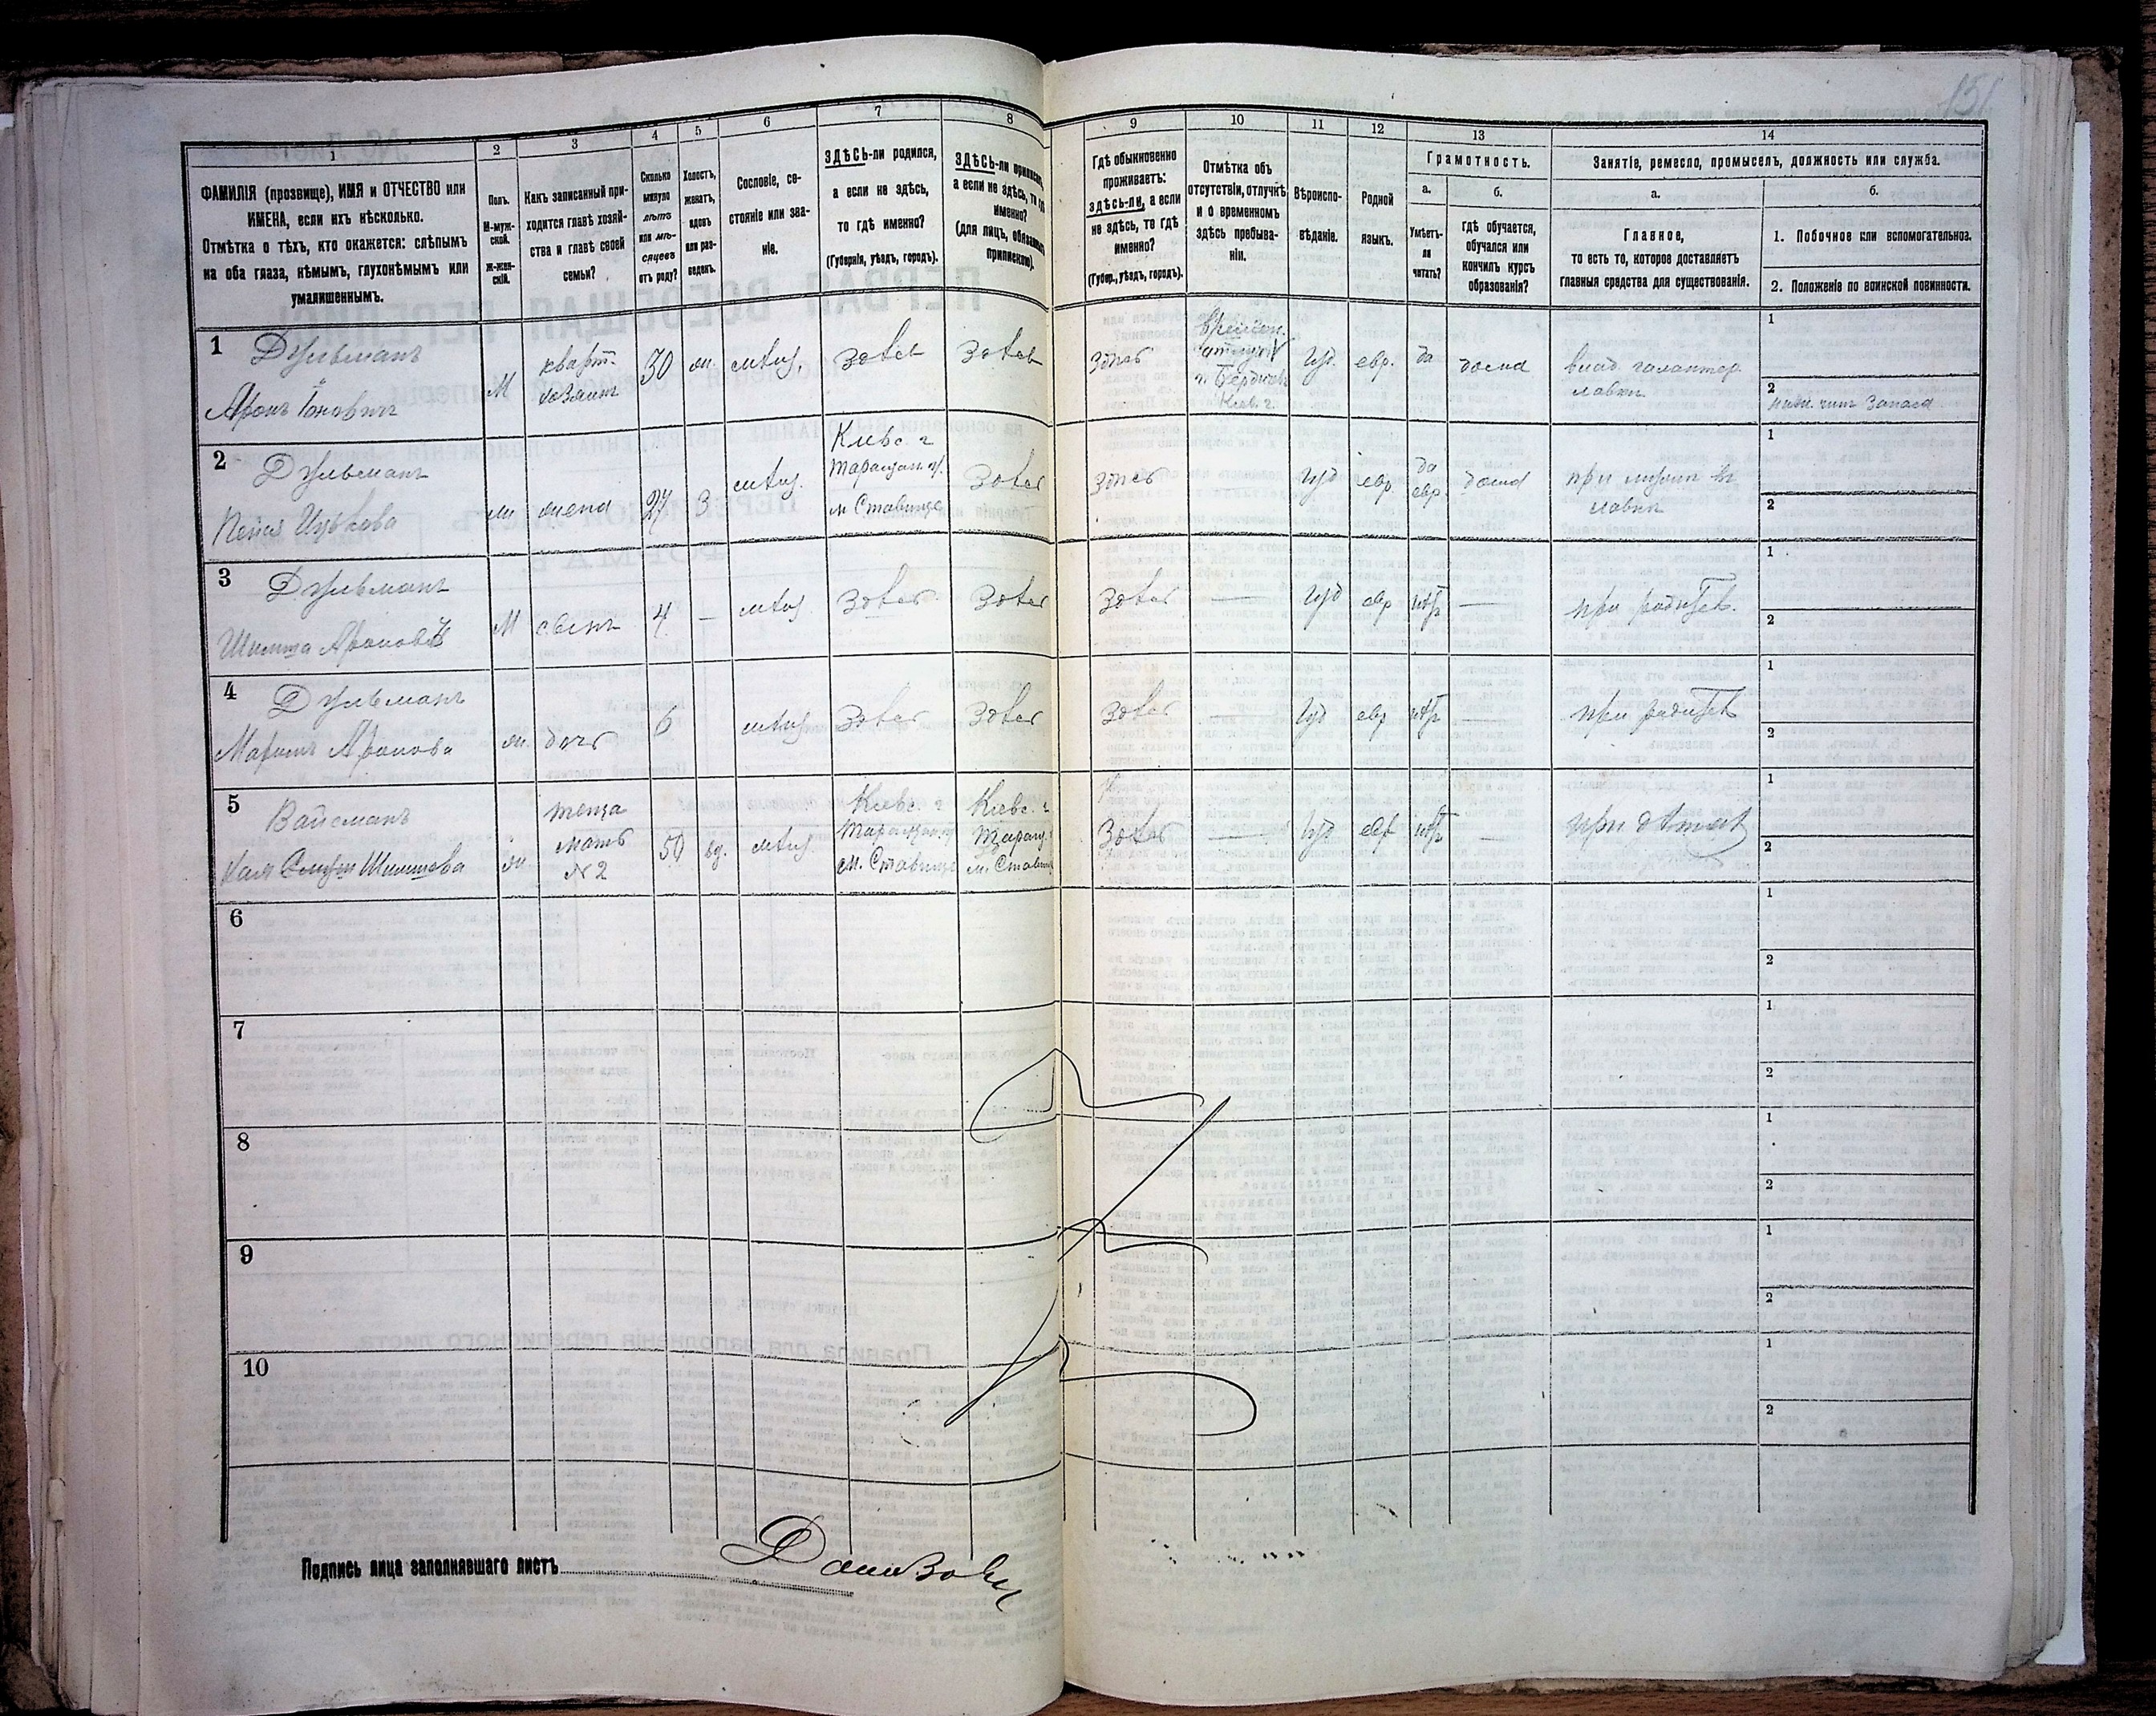 151
1
ФАМИЛІЯ (прозвище), ИМЯ и ОТЧЕСТВО или
ИМЕНА, если ихъ нѣсколько.
Отмѣтка о тѣхъ, кто окажется: слѣпымъ
на оба глаза, нѣмымъ, глухонѣмымъ или
умалишеннымъ.
2
Полъ.
М-муж-
ской.
Ж-жен-
скій.
3
Какъ записанный при-
ходится главѣ хозяй-
ства и главѣ своей
семьи?
4
Сколько
минуло
лѣтъ
или мѣ-
сяцевъ
отъ роду?
5
Холостъ,
женатъ,
вдовъ
или раз-
веденъ.
6
Сословіе, со-
стояніе или зва-
ніе.
7
ЗДѢСЬ-ли родился,
а если не здѣсь,
то гдѣ именно?
(Губернія, уѣздъ, городъ).
8
ЗДѢСЬ-ли приписанъ,
а если не здѣсь, то гдѣ
именно?
(для лицъ, обязанныхъ
припискою).
9
Гдѣ обыкновенно
проживаетъ:
здѣсь-ли, а если
не здѣсь, то гдѣ
именно?
(Губер., уѣздъ, городъ).
10
Отмѣтка объ
отсутствіи, отлучкѣ
и о временномъ
здѣсь пребыва-
ніи.
11
Вѣроиспо-
вѣданіе.
12
Родной
языкъ.
13
Грамотность.
а.
Умѣетъ-
ли
читать?
б.
Гдѣ обучается,
обучался или
кончилъ курсъ
образованія?
14
Занятіе, ремесло, промыселъ, должность или служба.
а.
Главное,
то есть то, которое доставляетъ
главныя средства для существованія.
б.
1. Побочное или вспомогательное.
2. Положеніе по воинской повинности.
1
Дульманъ
Аронъ Іоновичъ
М
кварт.
хозяинъ
30
жн.
мѣщ.
здѣсь
здѣсь
здѣсь
времен.
г. Бердичевъ
Кіев. г.
іуд.
евр.
да
дома
влад. галантер
лавки
1
2
нижн. чинъ запаса
2
Дульманъ
жн
жена
27
З
мѣщ.
Кіевс. г
Таращан. у.
м Ставище
здѣсь
здѣсь
іуд
евр
да
евр.
дома
при мужѣ въ
лавкѣ
1
2
3
Дульманъ
М
сынъ
4
—
мѣщ.
здѣсь
здѣсь
здѣсь
—
іуд
евр
нѣтъ
—
при родител.
1
2
4
Дульманъ
жн.
дочь
6
мѣщ
здѣсь
здѣсь
здѣсь
—
іуд
евр
нѣтъ
—
при родител
1
2
5
Вайсманъ
жн
теща
мать
№ 2
50
вд.
мѣщ
Кіевс. г
Таращан. у
м. Ставище
Кіевс. г
Таращ. у
м. Ставище
здѣсь
—
іуд
евр
нѣтъ
—
при дѣтяхъ
1
2
6
1
2
7
1
2
8
1
2
9
1
2
10
1
2
Подпись лица заполнявшаго листъ